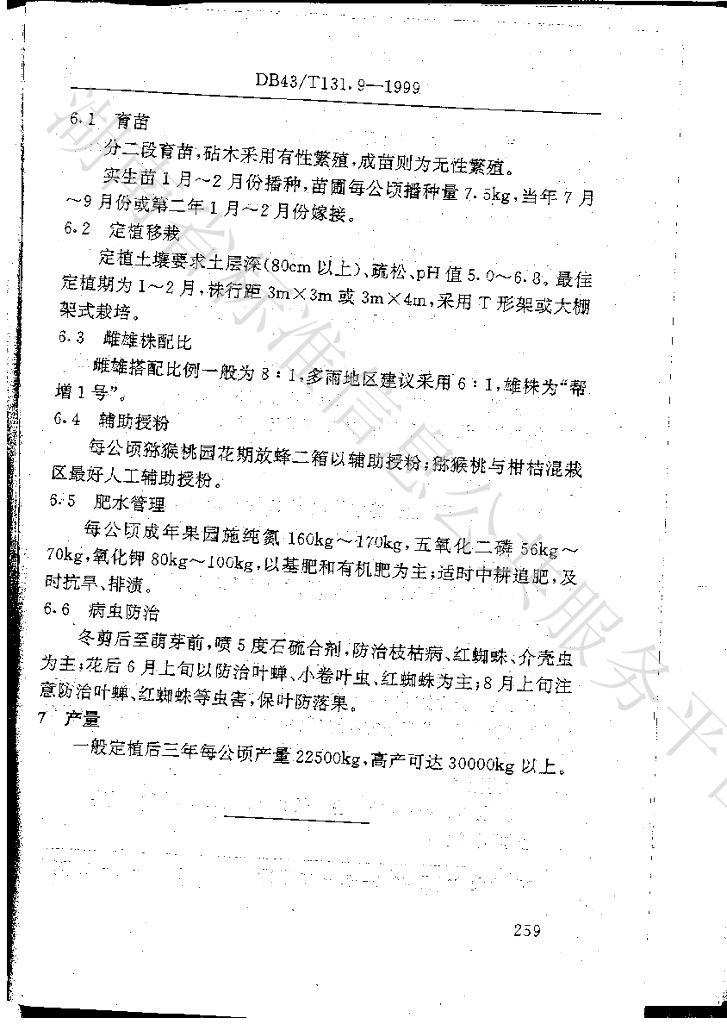 DB43/T131.9—1999
6.1 育苗
分二段育苗,砧木采用有性繁殖,成苗则为无性繁殖。
实生苗1月~2月份播种,苗圃每公顷播种量7.5kg,当年7月
~9月份或第二年1月~2月份嫁接。
6.2 定植移栽
定植土壤要求土层深(80cm以上)、疏松、pH值5.0~6.8。最佳
定植期为1~2月,株行距3m×3m或3m×4m,采用T形架或大棚
架式栽培。
6.3 雌雄株配比
雌雄搭配比例一般为8:1,多雨地区建议采用6:1,雄株为“帮
增1号”。
6.4 辅助授粉
每公顷猕猴桃园花期放蜂二箱以辅助授粉;猕猴桃与柑桔混栽
区最好人工辅助授粉。
6.5 肥水管理
每公顷成年果园施纯氮160kg~170kg,五氧化二磷56kg~
70kg,氧化钾80kg~100kg,以基肥和有机肥为主;适时中耕追肥,及
时抗旱、排渍。
6.6 病虫防治
冬剪后至萌芽前,喷5度石硫合剂,防治枝枯病、红蜘蛛、介壳虫
为主;花后6月上旬以防治叶蝉、小卷叶虫、红蜘蛛为主;8月上旬注
意防治叶蝉、红蜘蛛等虫害,保叶防落果。
7 产量
一般定植后三年每公顷产量22500kg,高产可达30000kg以上。
259
湖南省标准信息公共服务平台